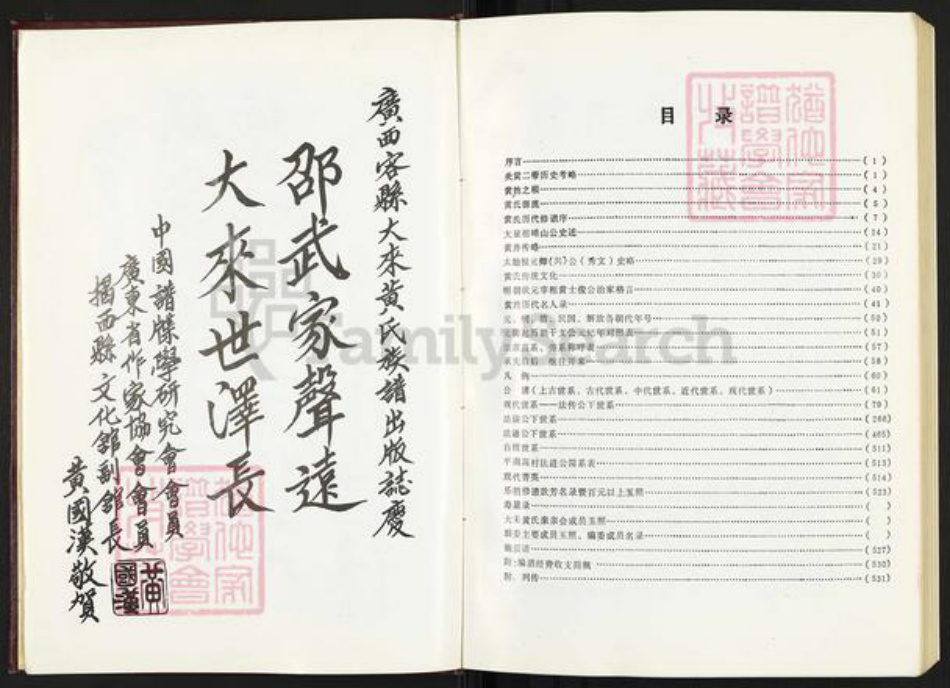 廣西容縣大來黃氏族譜出版誌慶
邵武家聲遠
大來世澤長
中國譜牒學研究會會員
廣東省作家協會會員
揭西縣文化館副館長
黃國漢敬賀
黃國漢
目 录
序言 (1)
炎黄二帝历史考略 (1)
黄姓之根 (4)
黄氏源流 (5)
黄氏历代修谱序 (7)
(14)
黄舟传略 (21)
(29)
黄氏传统文化 (30)
明朝状元宰相黄士俊公治家格言 (40)
黄姓历代名人录 (41)
元、明、清、民国、解放各朝代年号 (51)
(57)
承先启后 继往开来 (58)
凡 例 (60)
公 谱（上古世系、古代世系、中代世系、近代世系、现代世系） (61)
现代世系——法传公下世系 (79)
公下世系 (266)
法通公下世系 (465)
世系 (511)
(513)
现代菁英 (514)
乐捐修谱款芳名录暨百元以上玉照 (523)
( )
大来黄氏亲会成员玉照 ( )
主要成员玉照、编委成员名录 ( )
编后语 (527)
附：编谱经费收支简概 (530)
附：列传 (531)
FamilySearch